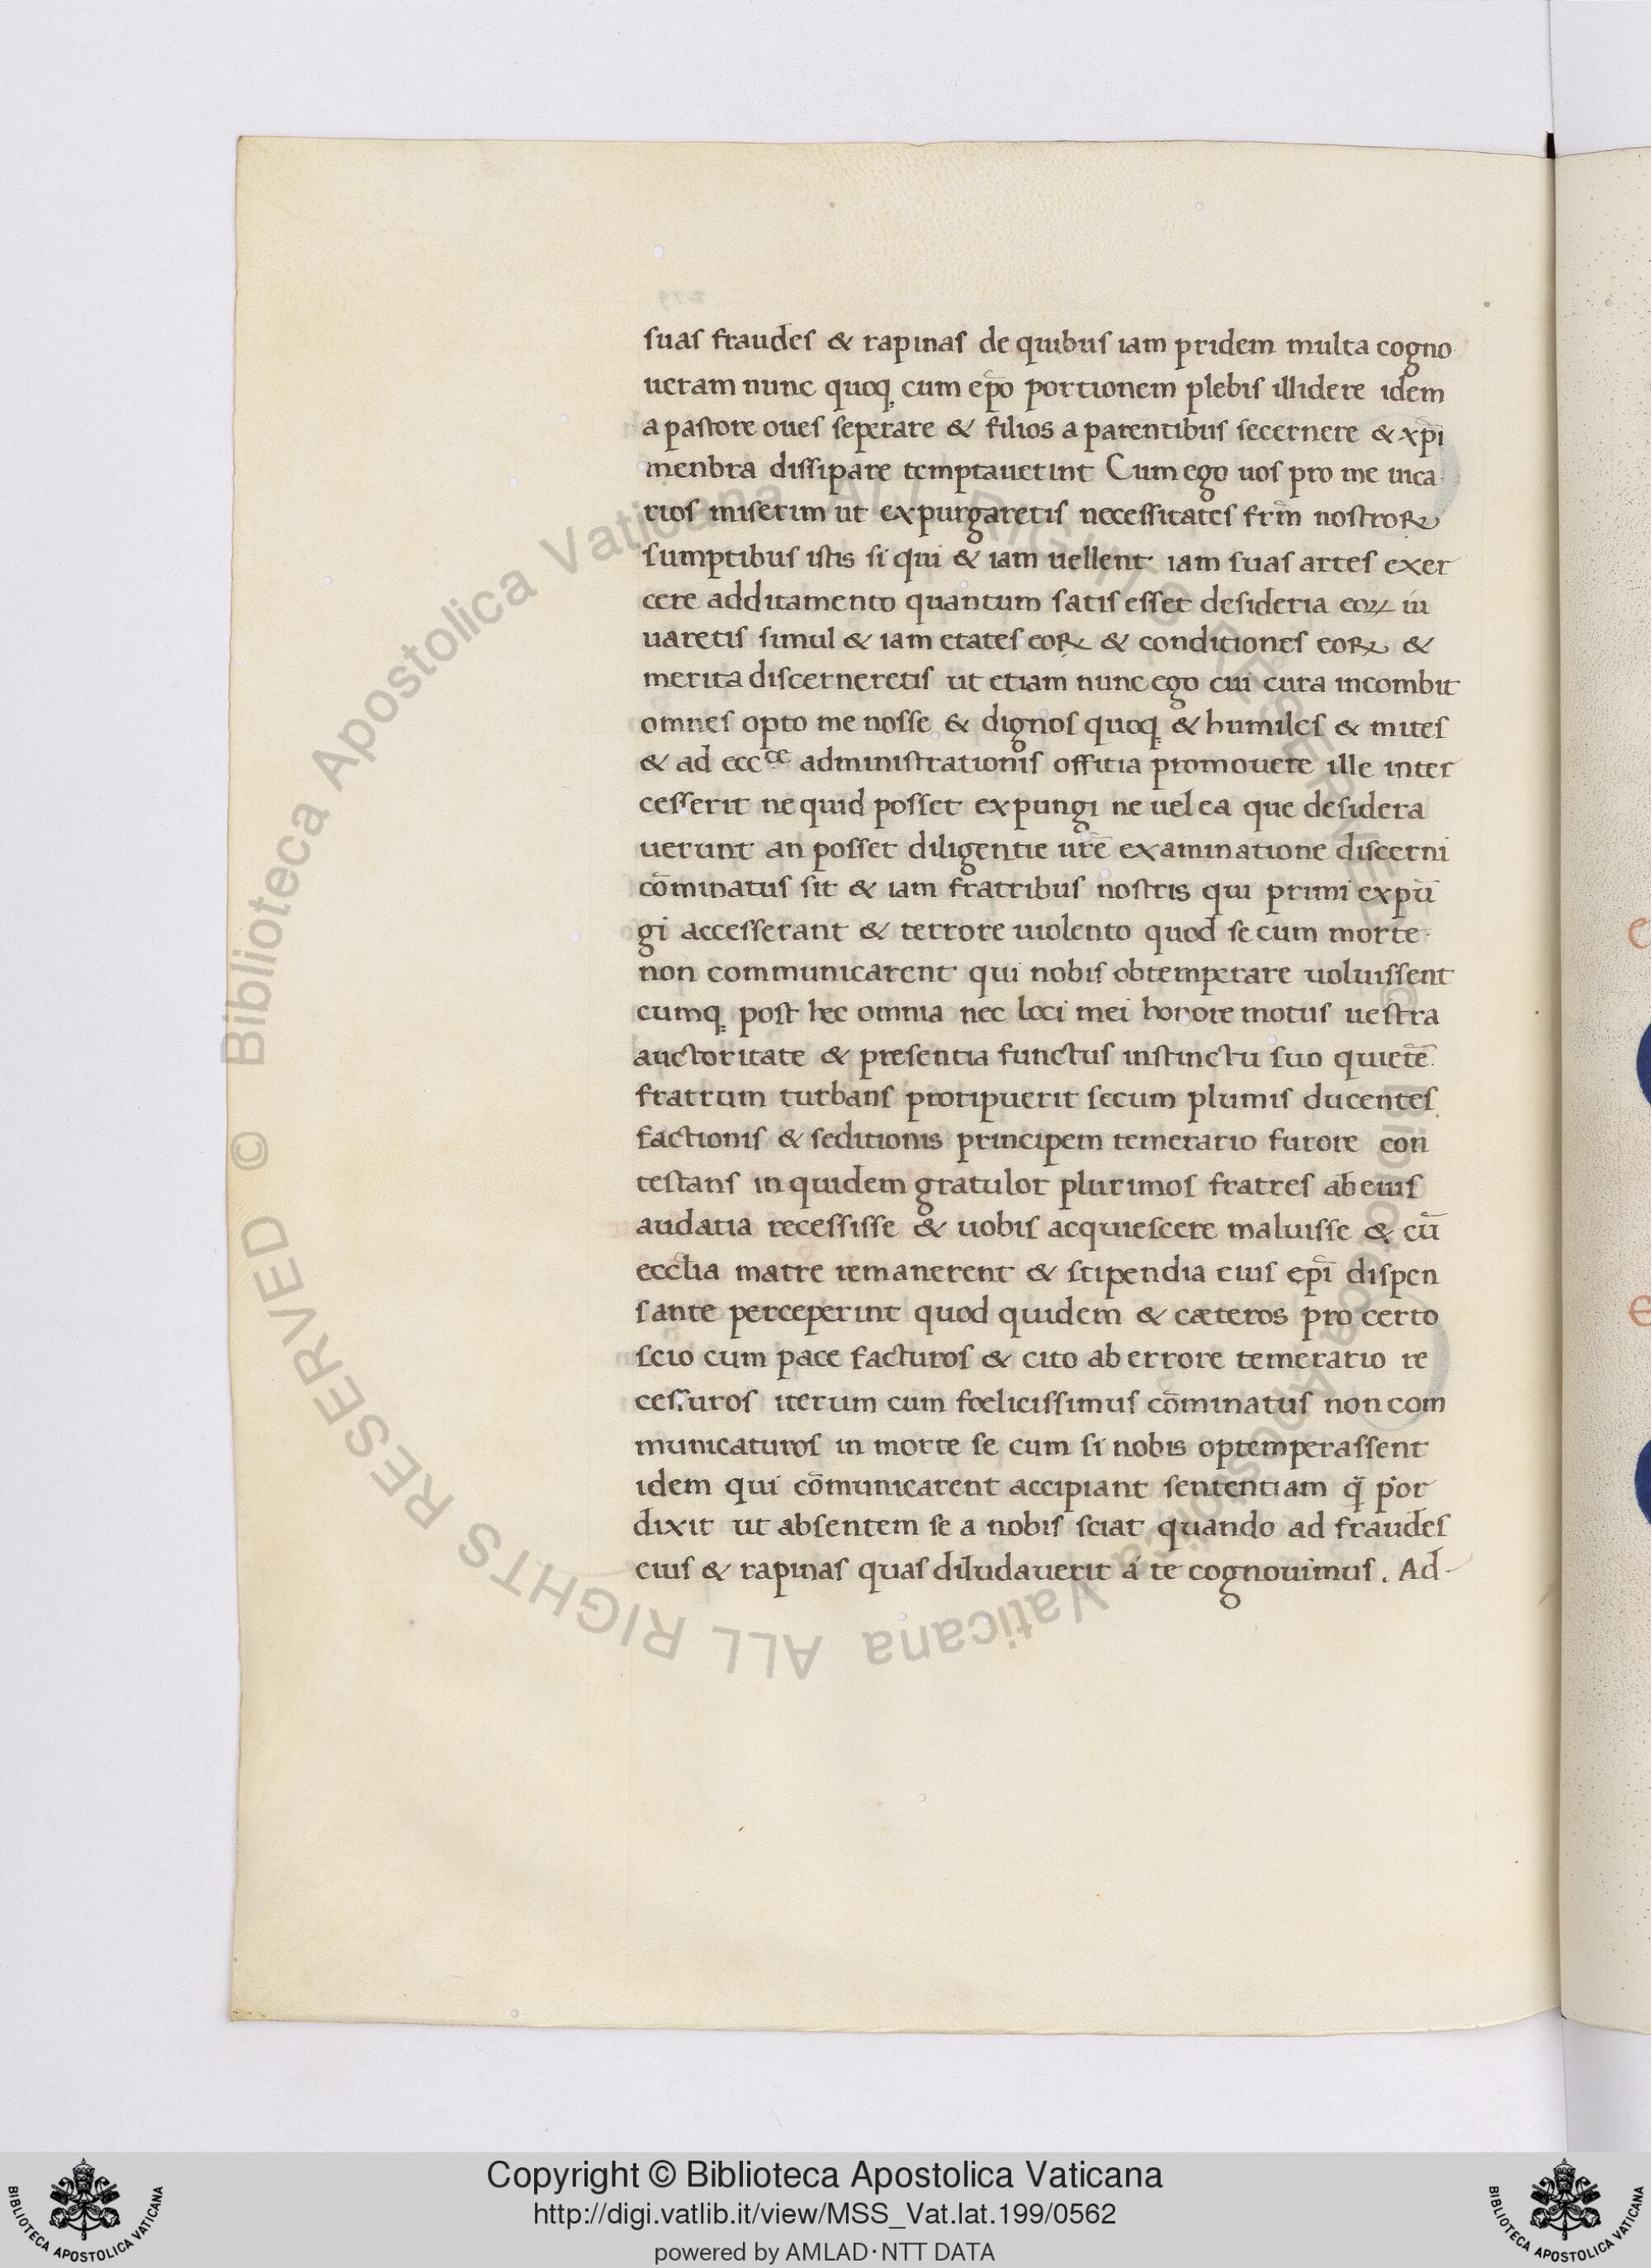 suas fraudes & rapinas de quibus iam pridem multa cogno
ueram nunc quoq; cum ep̄o portionem plebis illidere idem
a pastore oues seperare & filios a parentibus secernere & xp̄i
menbra dissipare temptauerint Cum ego uos pro me uica
rios miserim ut expurgaretis necessitates fr̄m nostroꝝ
sumptibus istis si qui & iam uellent iam suas artes exer
cere additamento quantum satis esset desideria eoꝝ iu
uaretis simul & iam etates eoꝝ & conditiones eoꝝ &
merita discerneretis ut etiam nunc ego cui cura incombit
omnes opto me nosse & dignos quoq; & humiles & mites
& ad ecc^ce administrationis offitia promouere ille inter
cesserit ne quid posset expungi ne uel ea que desidera
uerunt an posset diligentie ur̄e examinatione discerni
cōminatus sit & iam fratribus nostris qui primi expū
gi accesserant & terrore uiolento quod se cum morte
non communicarent qui nobis obtemperare uoluissent
cumq; post hec omnia nec loci mei honore motus uestra
auctoritate & presentia functus instinctu suo quietē
fratrum turbans proripuerit secum plumis ducentes
factionis & seditionis principem temerario furore con
testans in quidem gratulor plurimos fratres ab eius
audatia recessisse & uobis acquiescere maluisse & cū
eccl̄ia matre remanerent & stipendia eius ep̄i dispen
sante perceperint quod quidem & cæteros pro certo
scio cum pace facturos & cito ab errore temerario re
cessuros iterum cum fœlicissimus cōminatus non com
municaturos in morte se cum si nobis optemperassent
idem qui cōmunicarent accipiant sententiam q̄ p'or
dixit ut absentem se a nobis sciat quando ad fraudes
eius & rapinas quas diludauerit á te cognouimus. Ad
© Biblioteca Apostolica Vaticana ALL RIGHTS RESERVED
© Biblioteca Apostolica Vaticana ALL RIGHTS RESERVED
Copyright © Biblioteca Apostolica Vaticana
http://digi.vatlib.it/view/MSS_Vat.lat.199/0562
powered by AMLAD·NTT DATA
BIBLIOTECA APOSTOLICA VATICANA
BIBLIOTECA APOSTOLICA VATICANA